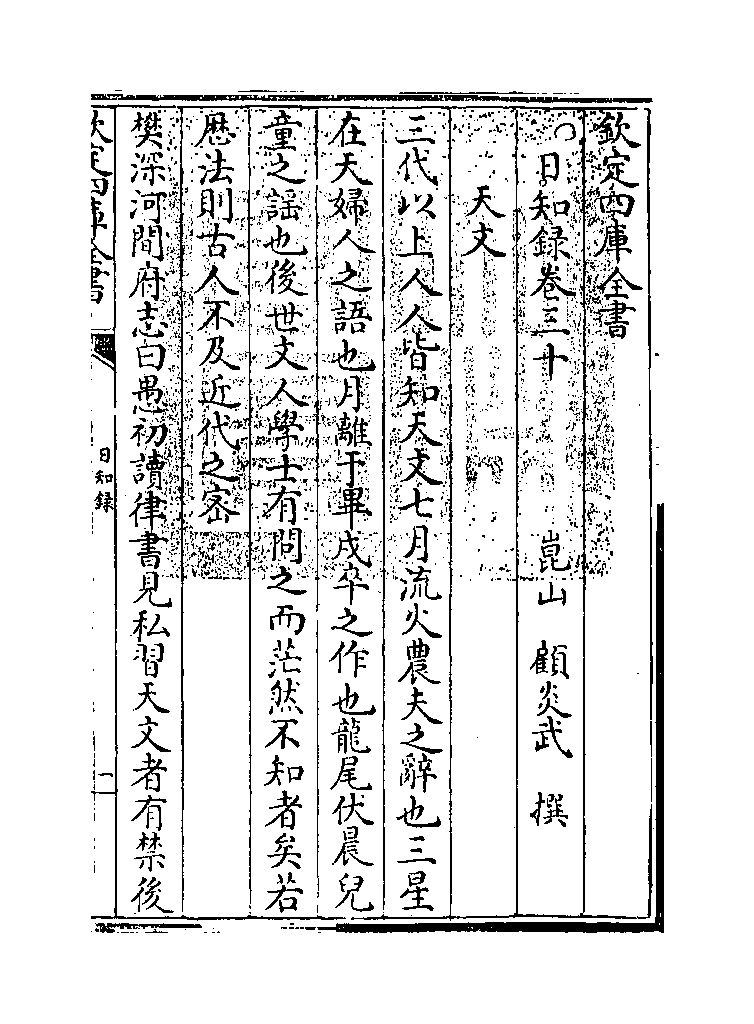 欽定四庫全書
日知録卷三十　崑山　顧炎武　撰
天文
三代以上人人皆知天文七月流火農夫之辭也三星
在天婦人之語也月離于畢戍卒之作也龍尾伏晨兒
童之謡也後世文人學士有問之而茫然不知者矣若
厯法則古人不及近代之宻
樊深河間府志曰愚初讀律書見私習天文者有禁後
欽定四庫全書
日知録
一